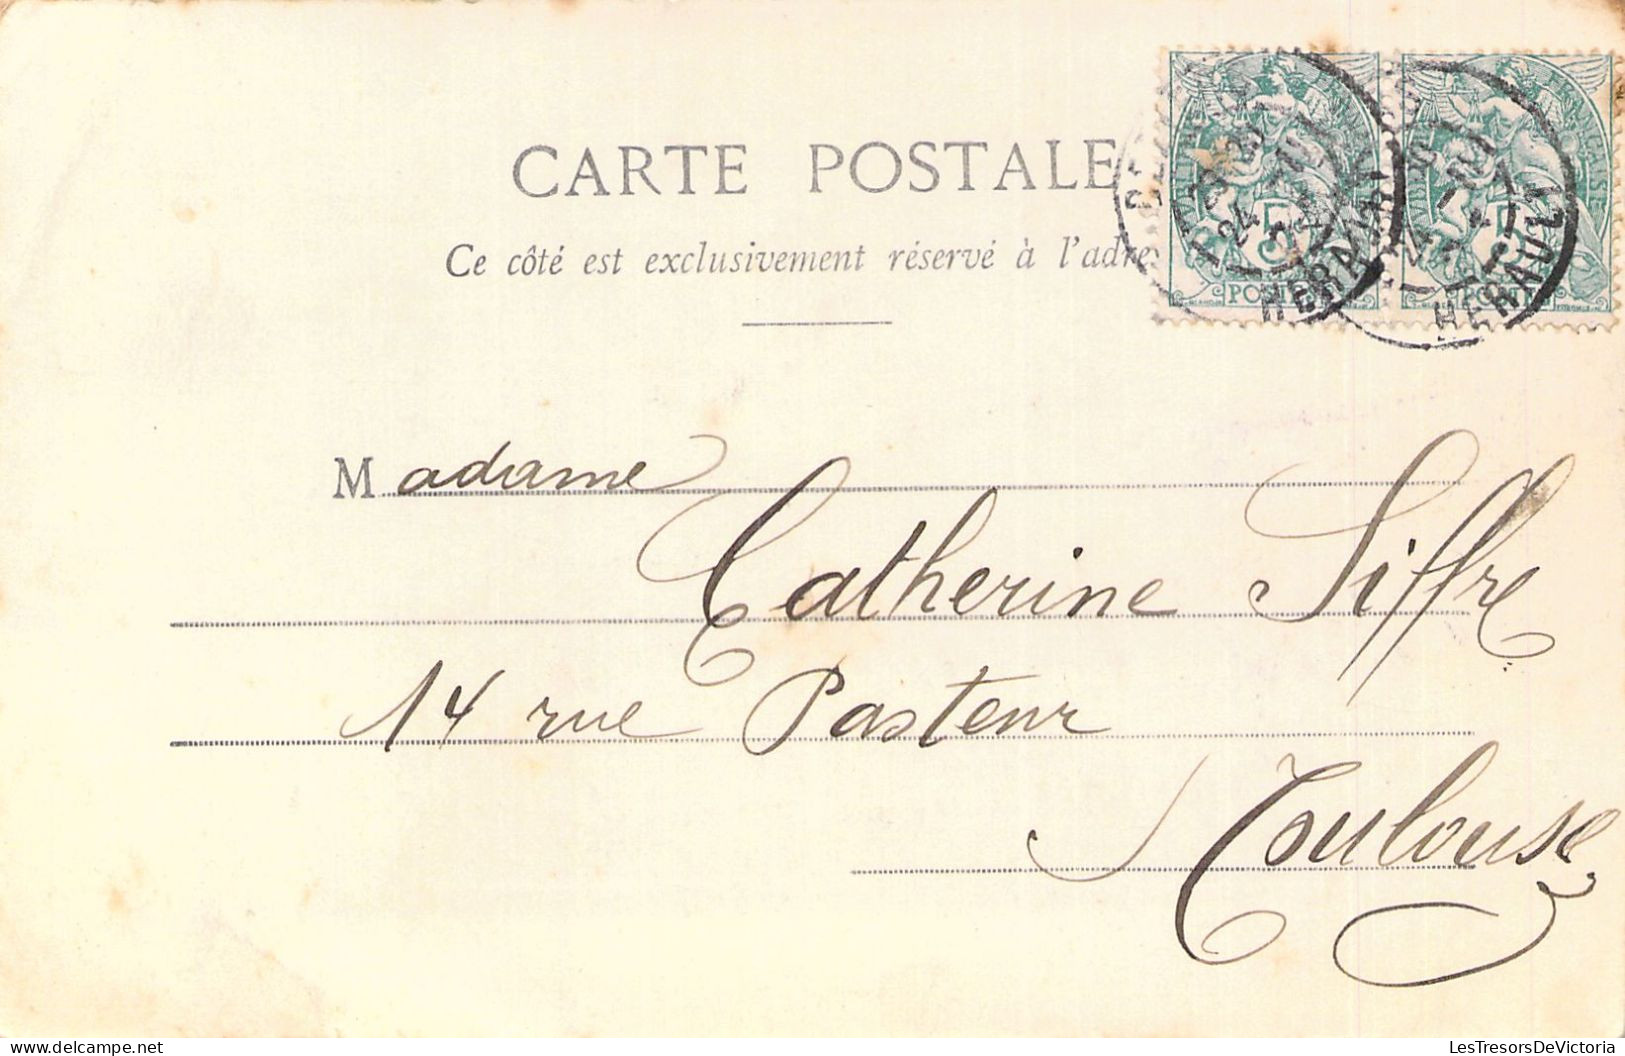 CARTE POSTALE
Ce côté est exclusivement réservé à l'adre
Madame
Catherine Siffre
14 rue Pasteur
Toulouse
5
POSTES
HERAULT
HERAULT
LesTresorsDeVictoria